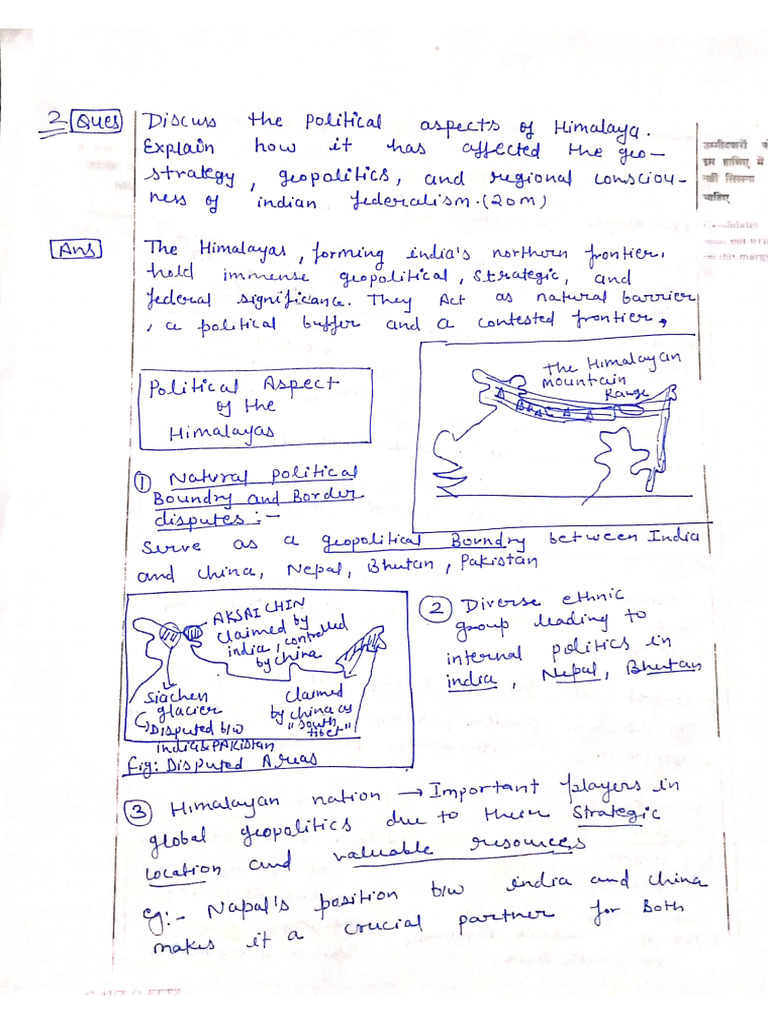 2 Ques Discuss the Political aspects of Himalaya.
Explain how it has affected the geo-
strategy, geopolitics, and regional consciou-
ness of indian federalism. (20m)
उम्मीदवारों को
इस हाशिए में
नहीं लिखना
चाहिए
Ans The Himalayas, forming india's northern frontier,
hold immense geopolitical, strategic, and
federal significance. They Act as natural barrier
, a political buffer and a contested frontier.
Political Aspect
of the
Himalayas
The Himalayan
mountain
Range
① Natural political
Boundry and Border
disputes:-
Serve as a geopolitical Boundry between India
and China, Nepal, Bhutan, Pakistan
AKSAI CHIN
claimed by
india, controlled
by china
Siachen
glacier
Disputed b/w
India & PAKistan
claimed
by china as
"south
tibet"
fig: Disputed Areas
② Diverse ethnic
group leading to
internal politics in
india, Nepal, Bhutan
③ Himalayan nation → Important players in
global geopolitics due to their Strategic
location and valuable resources
eg:- Napal's position b/w india and china
makes it a crucial partner for Both